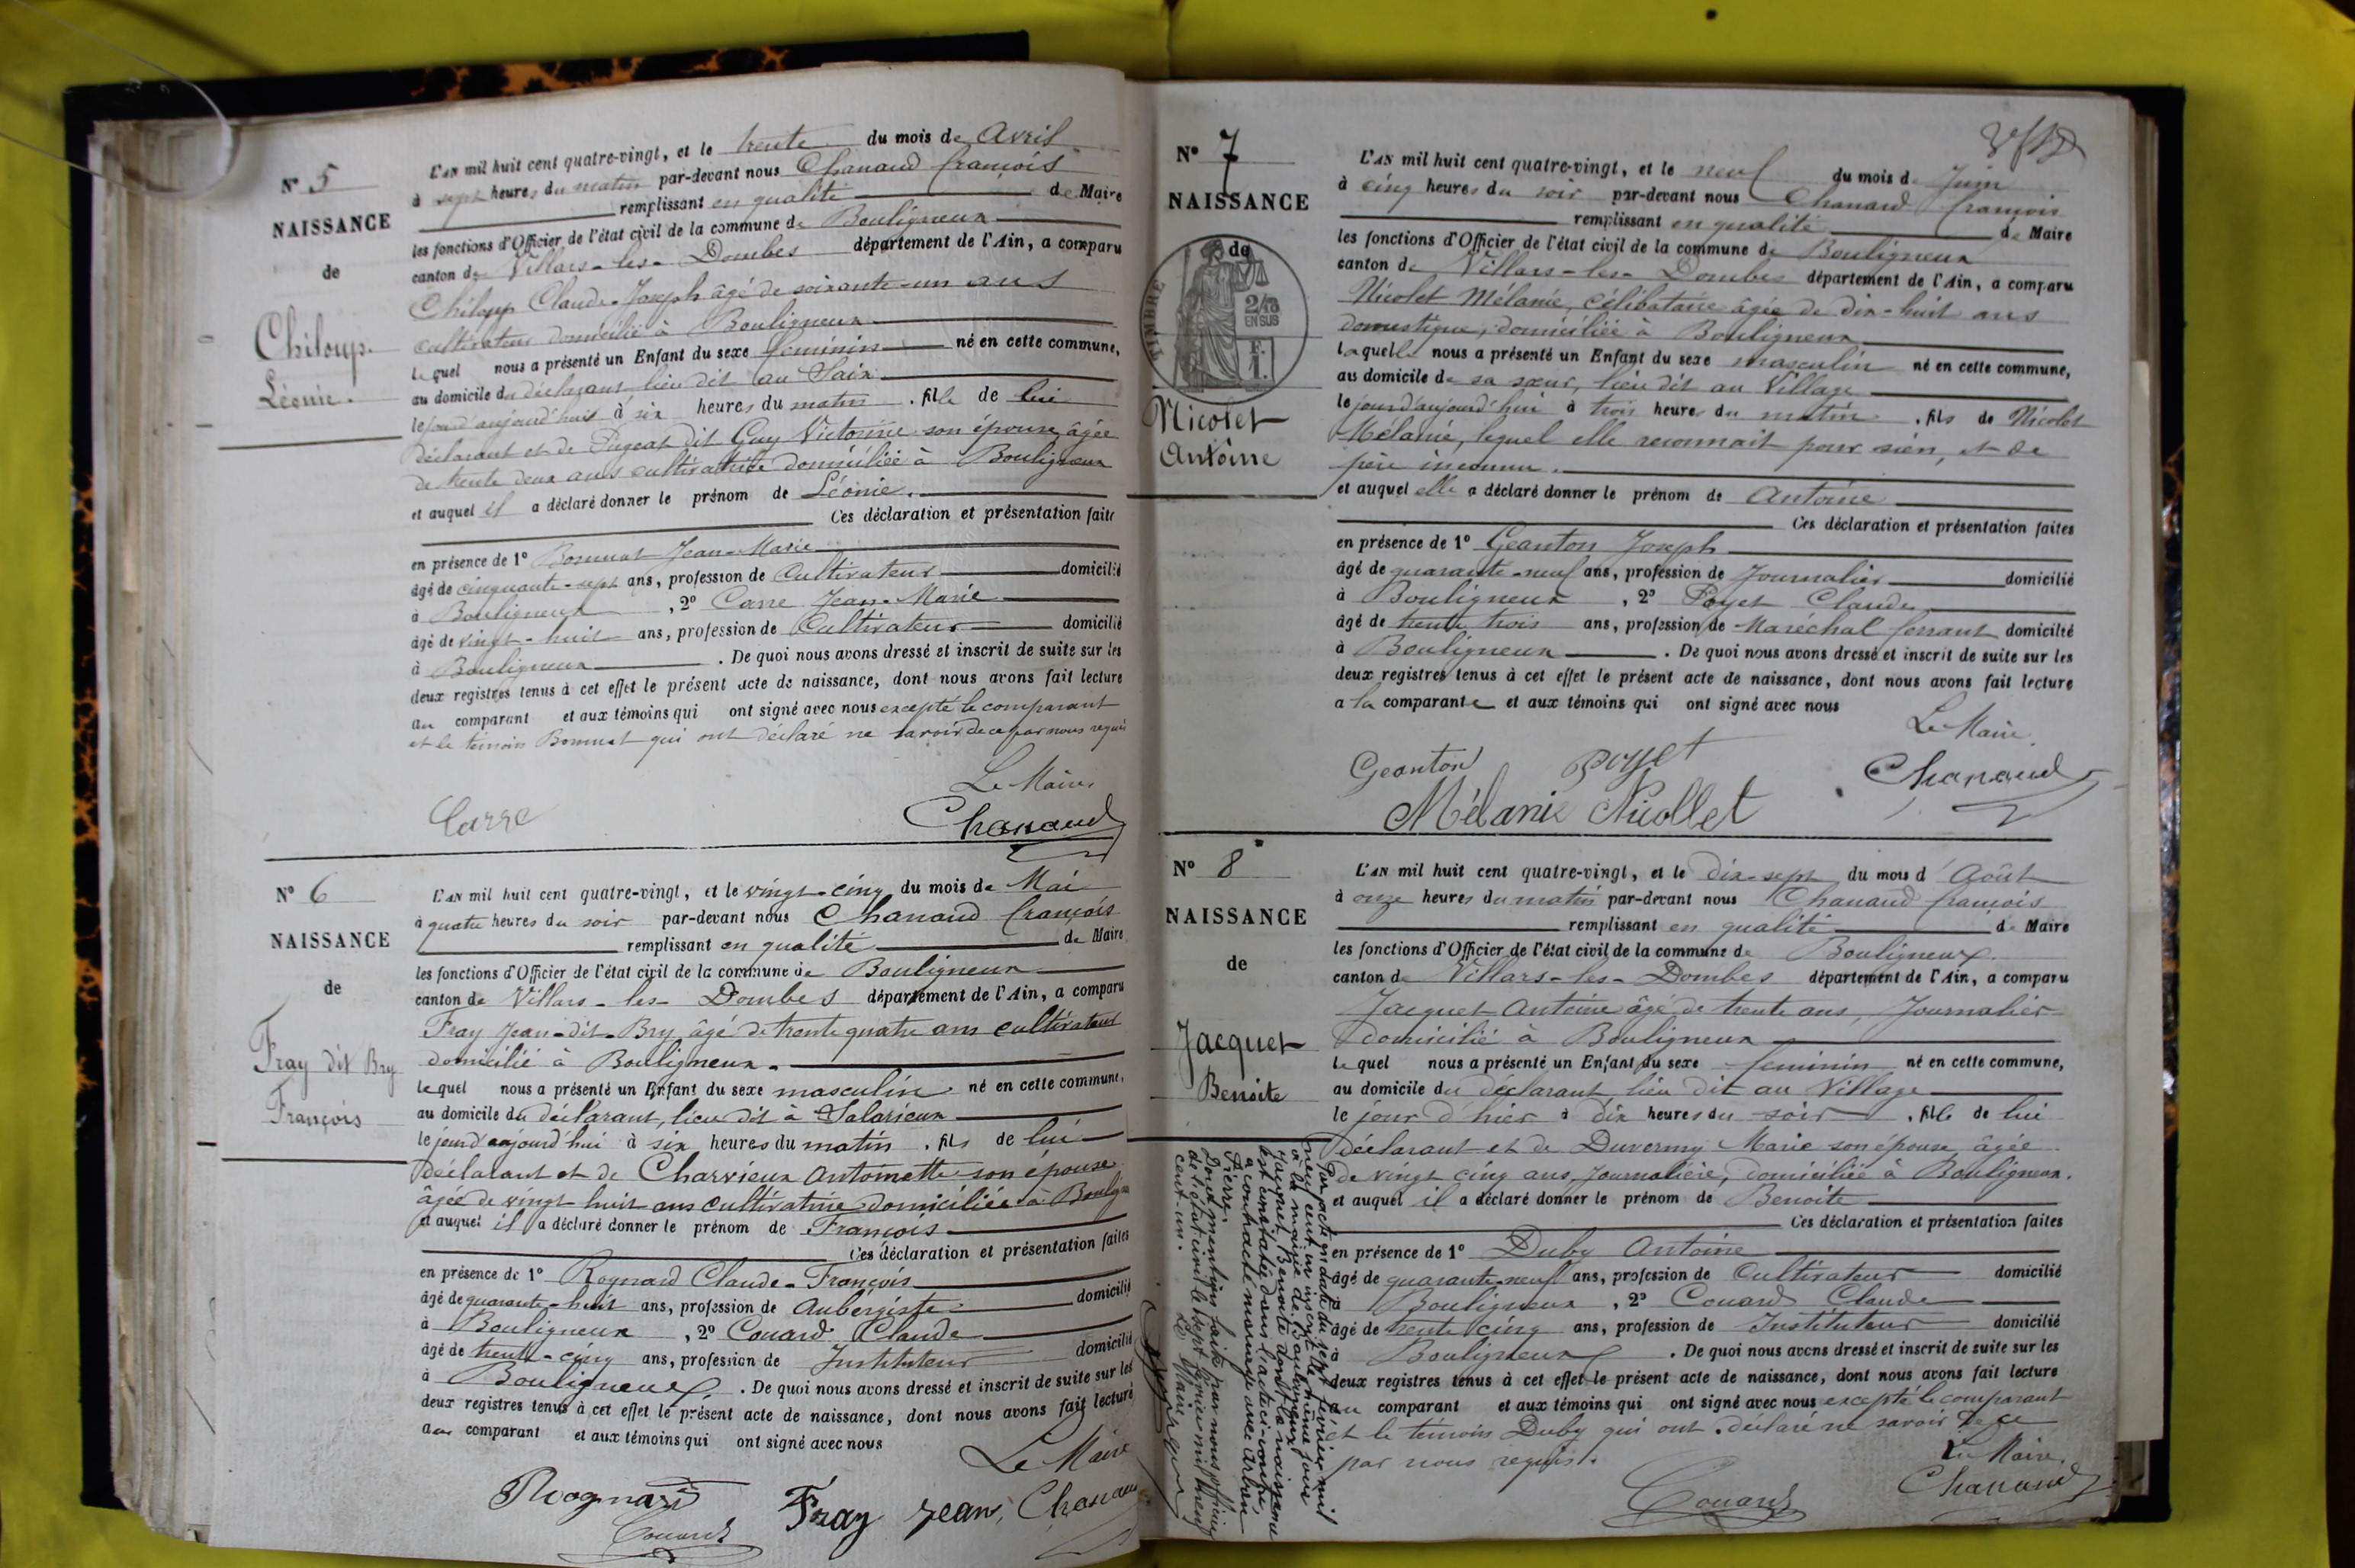 N° 5
NAISSANCE
de
Chiloup.
Léonie.
L'AN mil huit cent quatre-vingt, et le trente du mois de Avril
à sept heures du matin par-devant nous Chanaud françois
remplissant en qualité de Maire
les fonctions d'Officier de l'état civil de la commune de Bouligneux
canton de Villars-les-Dombes département de l'Ain, a comparu
Chiloup Claude-Joseph âgé de soixante-un ans
cultivateur domicilié à Bouligneux
lequel nous a présenté un Enfant du sexe féminin né en cette commune,
au domicile du déclarant, lieu dit au
le jour d'aujourd'hui à six heures du matin, fille de lui
déclarant et de Pugeat dit Guy Victorine son épouse âgée
de trente deux ans cultivatrice domiciliée à Bouligneux
et auquel il a déclaré donner le prénom de Léonie.
Ces déclaration et présentation faites
en présence de 1° Bonnat Jean-Marie
âgé de cinquante-sept ans, profession de Cultivateur domicilié
à Bouligneux, 2° Carre Jean-Marie
âgé de vingt-huit ans, profession de Cultivateur domicilié
à Bouligneux. De quoi nous avons dressé et inscrit de suite sur les
deux registres tenus à cet effet le présent acte de naissance, dont nous avons fait lecture
au comparant et aux témoins qui ont signé avec nous excepté le comparant
et le témoin Bonnat qui ont déclaré ne savoir de ce par nous requis
Le Maire
Carre Chanaud
N° 6
NAISSANCE
de
Fray dit Bry
François
L'AN mil huit cent quatre-vingt, et le vingt-cinq du mois de Mai
à quatre heures du soir par-devant nous Chanaud françois
remplissant en qualité de Maire
les fonctions d'Officier de l'état civil de la commune de Bouligneux
canton de Villars-les-Dombes département de l'Ain, a comparu
Fray Jean-dit-Bry âgé de trente quatre ans cultivateur
domicilié à Bouligneux.
lequel nous a présenté un Enfant du sexe masculin né en cette commune,
au domicile du déclarant, lieu dit à Salarieux
le jour d'aujourd'hui à six heures du matin, fils de lui
déclarant et de Charvieux Antoinette son épouse
âgée de vingt huit ans cultivatrice domiciliée à Boulign
et auquel il a déclaré donner le prénom de François
Ces déclaration et présentation faites
en présence de 1° Rognard Claude-François
âgé de quarante-huit ans, profession de Aubergiste domicilié
à Bouligneux, 2° Couard Claude
âgé de trente-cinq ans, profession de Instituteur domicilié
à Bouligneux. De quoi nous avons dressé et inscrit de suite sur les
deux registres tenus à cet effet le présent acte de naissance, dont nous avons fait lecture
au comparant et aux témoins qui ont signé avec nous
Le Maire
Rognard Couard Fray Jean, Chanaud
N° 7
NAISSANCE
de
TIMBRE
2/10
EN SUS
F.
1.
Nicolet
Antoine
L'AN mil huit cent quatre-vingt, et le neuf du mois d Juin
à cinq heures du soir par-devant nous Chanaud françois
remplissant en qualité de Maire
les fonctions d'Officier de l'état civil de la commune de Bouligneux
canton de Villars-les-Dombes département de l'Ain, a comparu
Nicolet Mélanie, célibataire âgée de dix-huit ans
domestique, domiciliée à Bouligneux
laquelle nous a présenté un Enfant du sexe masculin né en cette commune,
au domicile de sa sœur, lieu dit au Village
le jour d'aujourd'hui à trois heures du matin, fils de Nicolet
Mélanie, lequel elle reconnait pour sien, et de
père inconnu.
et auquel elle a déclaré donner le prénom de Antoine
Ces déclaration et présentation faites
en présence de 1° Geanton Joseph
âgé de quarante-neuf ans, profession de Journalier domicilié
à Bouligneux, 2° Poyet Claude
âgé de trente trois ans, profession de Maréchal ferrant domicilié
à Bouligneux. De quoi nous avons dressé et inscrit de suite sur les
deux registres tenus à cet effet le présent acte de naissance, dont nous avons fait lecture
a la comparante et aux témoins qui ont signé avec nous
Le Maire
Geanton Poyet Chanaud
Mélanie Nicollet
N° 8
NAISSANCE
de
Jacquet
Benoite
L'AN mil huit cent quatre-vingt, et le dix-sept du mois d'Août
à onze heures du matin par-devant nous Chanaud françois
remplissant en qualité de Maire
les fonctions d'Officier de l'état civil de la commune de Bouligneux
canton de Villars-les-Dombes département de l'Ain, a comparu
Jacquet Antoine âgé de trente ans, Journalier
domicilié à Bouligneux
lequel nous a présenté un Enfant du sexe féminin né en cette commune,
au domicile du déclarant, lieu dit au Village
le jour d'hier à dix heures du soir, fille de lui
déclarant et de Duvermy Marie son épouse, âgée
de vingt cinq ans, Journalière, domiciliée à Bouligneux.
et auquel il a déclaré donner le prénom de Benoite
Ces déclaration et présentation faites
en présence de 1° Duby Antoine
âgé de quarante-neuf ans, profession de Cultivateur domicilié
à Bouligneux, 2° Couard Claude
âgé de trente cinq ans, profession de Instituteur domicilié
à Bouligneux. De quoi nous avons dressé et inscrit de suite sur les
deux registres tenus à cet effet le présent acte de naissance, dont nous avons fait lecture
au comparant et aux témoins qui ont signé avec nous excepté le comparant
et le témoin Duby qui ont déclaré ne savoir de ce
par nous requis.
Le Maire,
Couard Chanaud
Par acte en date du sept février mil
neuf cent un inscrit le même jour
à la mairie de Bouligneux
Jacquet Benoite dont la naissance
est constatée dans l'acte ci-contre,
a contracté mariage avec Arban
Pierre.
Dont mention faite par nous officier
de l'état civil le sept février mil neuf
cent-un. Le Maire